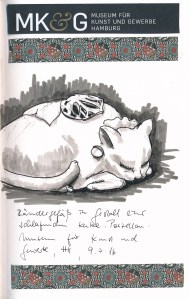 MK&G
MUSEUM FÜR
KUNST UND GEWERBE
HAMBURG
Räuchergefäß in Gestalt einer
schlafenden Katze. Porzellan.
Museum für Kunst und
Gewerbe, HH, 9.2.16